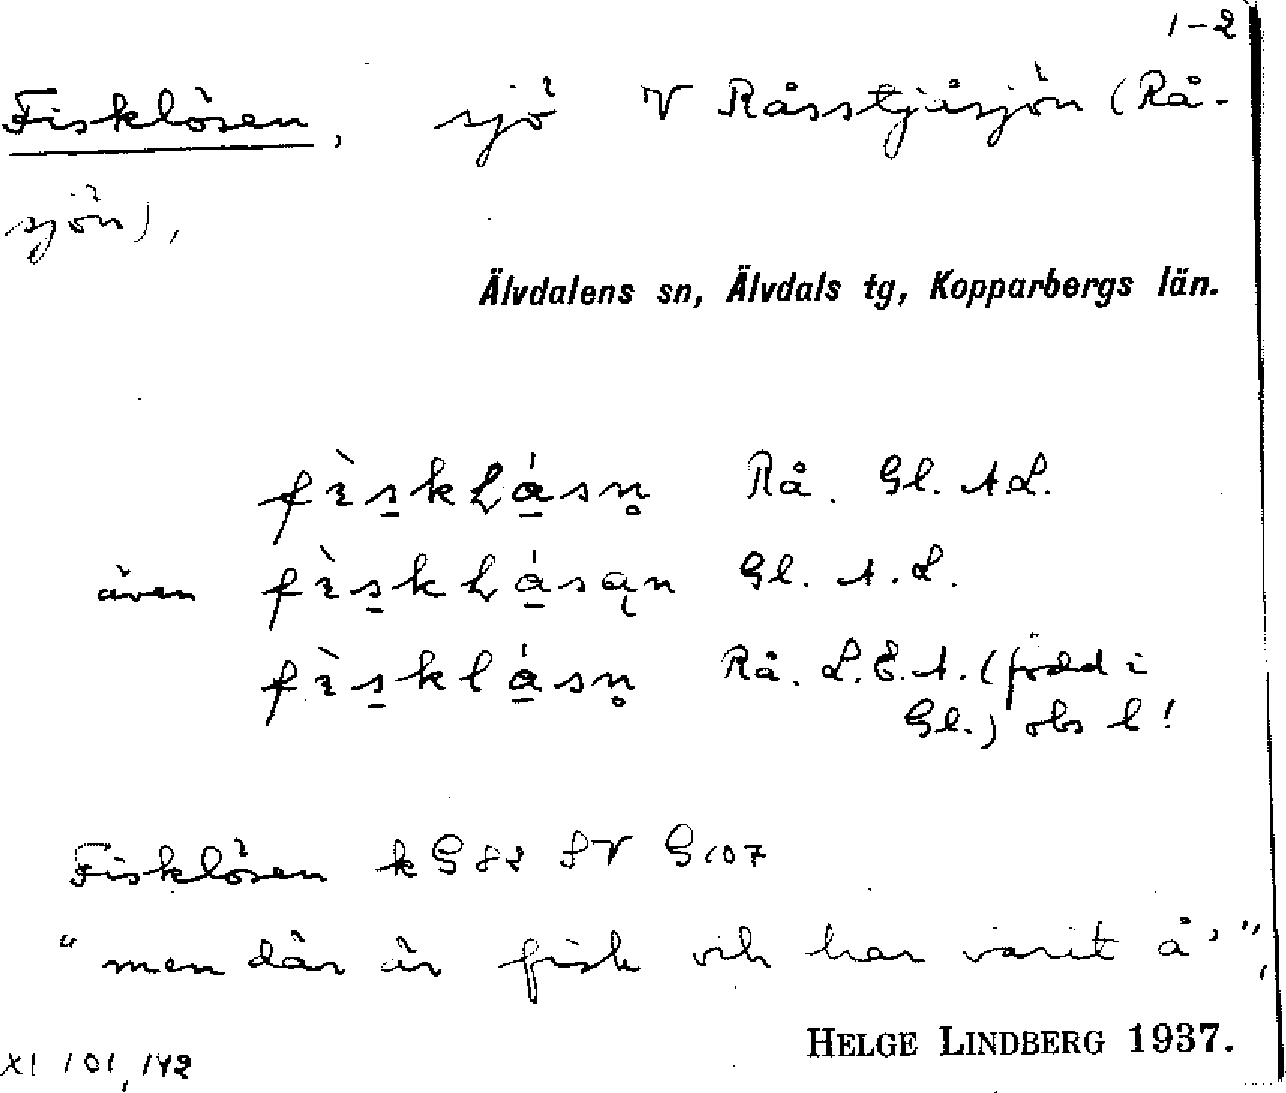 1-2
Fisklösen, sjö V Råsstjåsjön (Rå-
sjön),
Älvdalens sn, Älvdals tg, Kopparbergs län.
fìskLásn̥ Rå. Gl. A.L.
även fìskLásąn Gl. A.L.
fìsklásn̥ Rå. L.E.A. (född i
Gl.) obs l!
Fisklösen k G 82 SV G 107
"men där är fisk och har varit å'",
HELGE LINDBERG 1937.
XI 101, 142